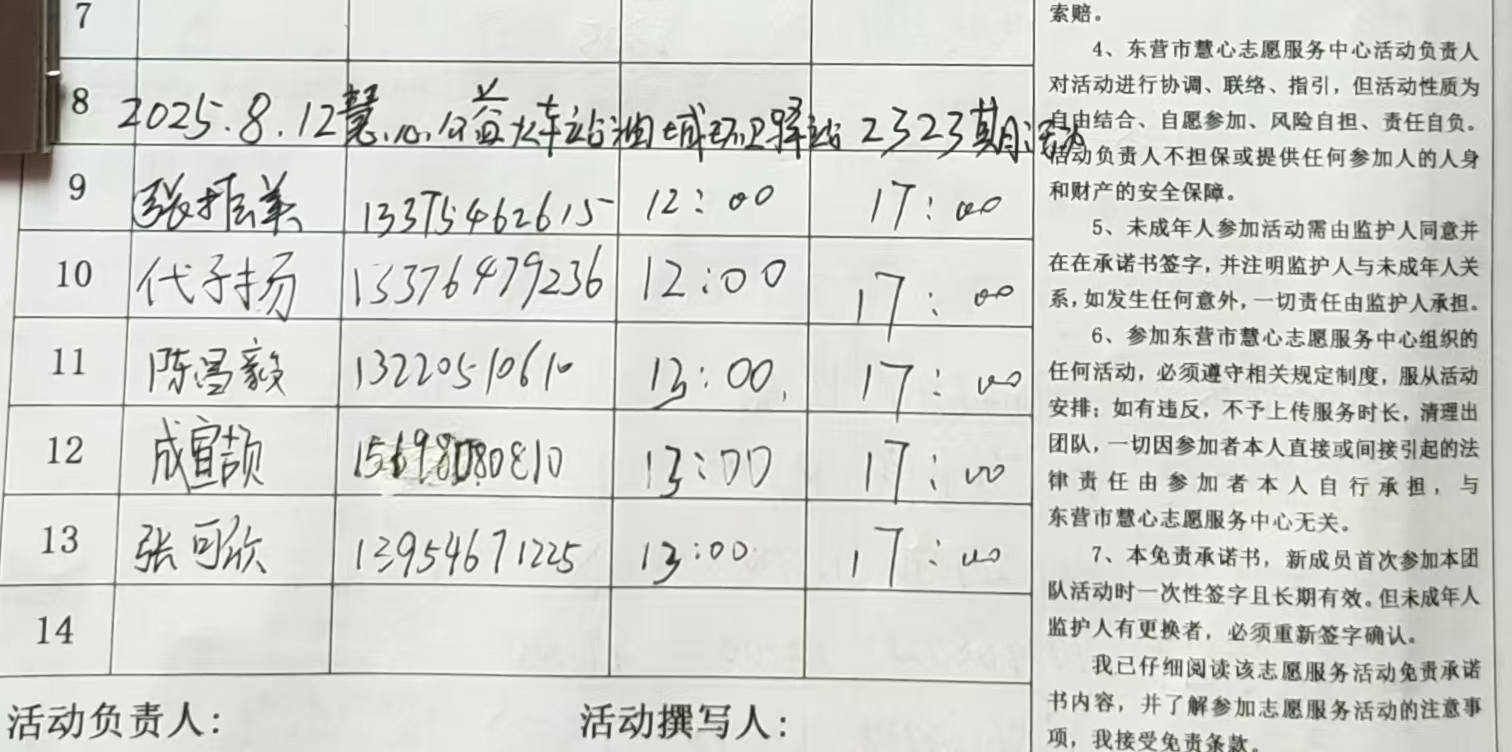 7
8 2025.8.12慧心公益火车站油城环卫驿站2323期活动
9 张振美 13375462615 12:00 17:00
10 代子扬 13376479236 12:00 17:00
11 陈昌毅 13220510610 13:00 17:00
12 成宣颉 15698080810 13:00 17:00
13 张可欣 13954671225 13:00 17:00
14
活动负责人: 活动撰写人:
索赔。
4、东营市慧心志愿服务中心活动负责人
对活动进行协调、联络、指引，但活动性质为
自由结合、自愿参加、风险自担、责任自负。
活动负责人不担保或提供任何参加人的人身
和财产的安全保障。
5、未成年人参加活动需由监护人同意并
在在承诺书签字，并注明监护人与未成年人关
系，如发生任何意外，一切责任由监护人承担。
6、参加东营市慧心志愿服务中心组织的
任何活动，必须遵守相关规定制度，服从活动
安排；如有违反，不予上传服务时长，清理出
团队，一切因参加者本人直接或间接引起的法
律责任由参加者本人自行承担，与
东营市慧心志愿服务中心无关。
7、本免责承诺书，新成员首次参加本团
队活动时一次性签字且长期有效。但未成年人
监护人有更换者，必须重新签字确认。
我已仔细阅读该志愿服务活动免责承诺
书内容，并了解参加志愿服务活动的注意事
项，我接受免责条款。